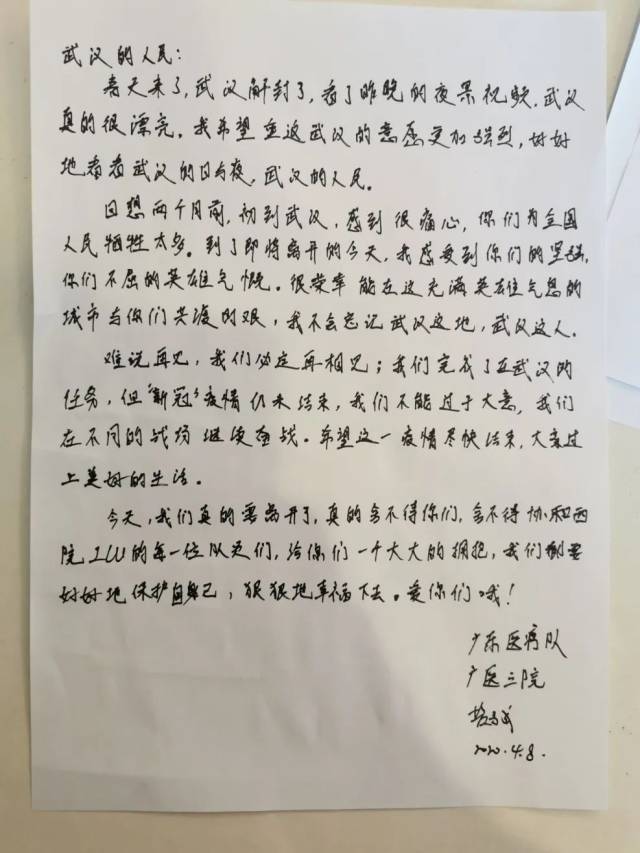 武汉的人民：
春天来了，武汉解封了，看了昨晚的夜景视频，武汉
真的很漂亮。我希望重返武汉的意愿更加强烈，好好
地看看武汉的日与夜，武汉的人民。
回想两个月前，初到武汉，感到很痛心，你们为全国
人民牺牲太多。到了即将离开的今天，我感受到你们的坚强，
你们不屈的英雄气慨。很荣幸能在这充满英雄气息的
城市与你们共渡时艰，我不会忘记武汉这地，武汉这人。
难说再见，我们必定再相见；我们完成了在武汉的
任务，但“新冠”疫情仍未结束，我们不能过于大意，我们
在不同的战场继续奋战。希望这一疫情尽快结束，大家过
上美好的生活。
今天，我们真的需离开了，真的舍不得你们，舍不得协和西
院ICU的每一位队友们，给你们一个大大的拥抱，我们都要
好好地保护自己，狠狠地幸福下去。爱你们哦！
广东医疗队
广医三院
2020.4.8.